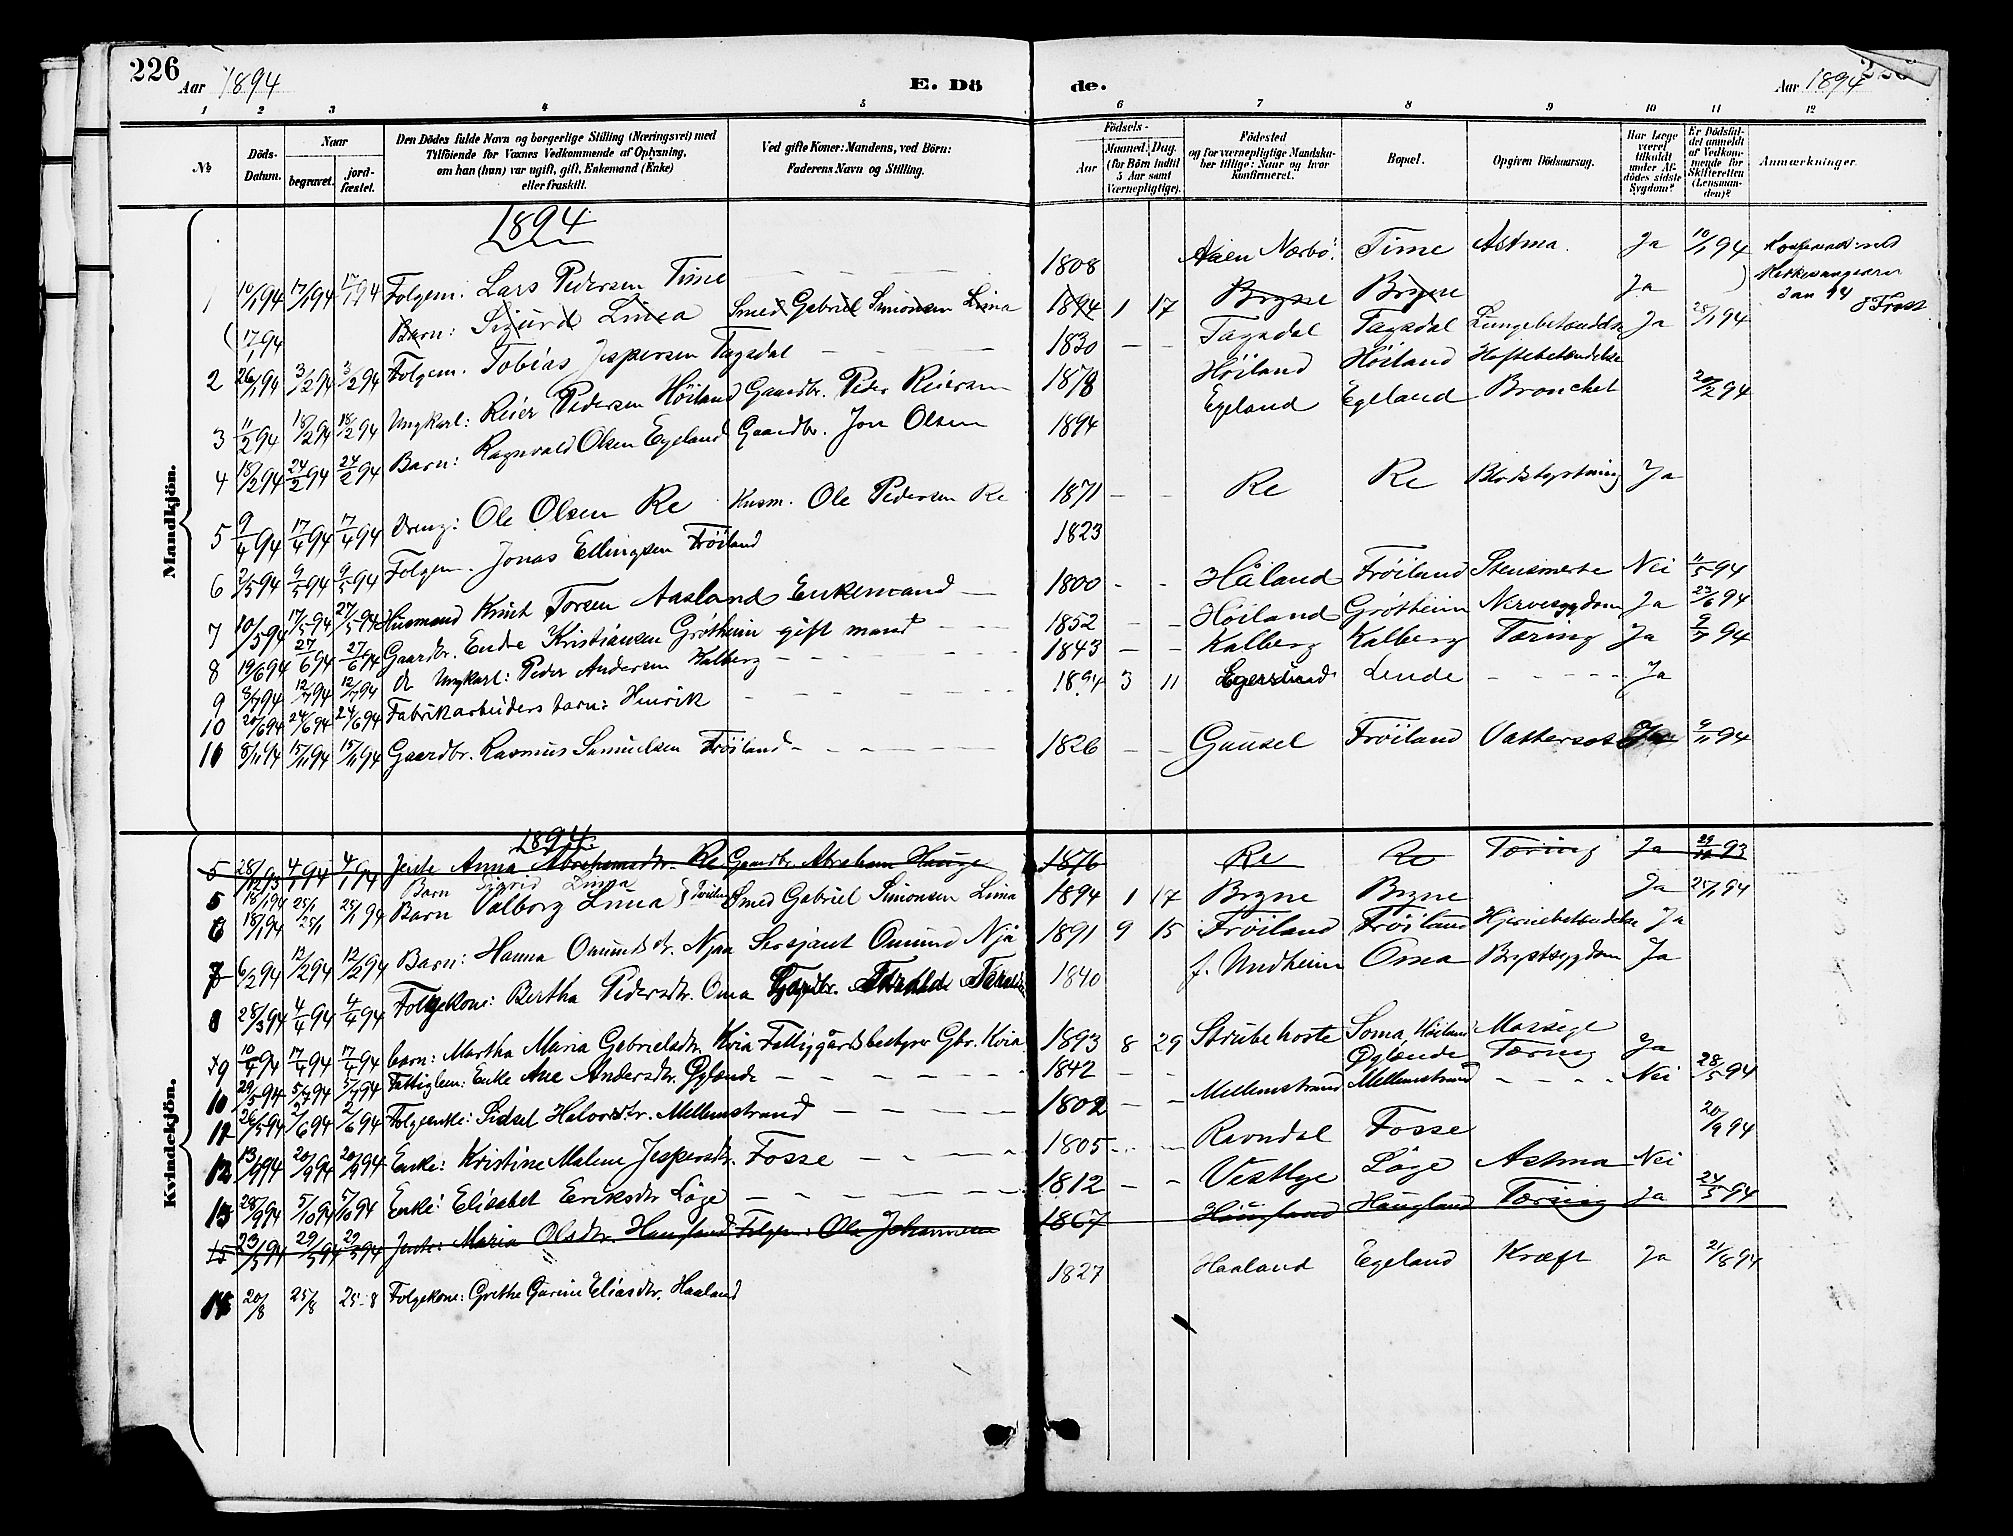 226 Aar 1894 E. Dö de. Aar 1894
1 2 3 4 5 6 7 8 9 10 11 12
No
Döds-Datum.
Naar
begravet.
jordfæstet.
Den Dödes fulde Navn og borgerlige Stilling (Næringsvei) med Tilföiende for Voxnes Vedkommende af Oplysning, om han (hun) var ugift, gift, Enkemand (Enke) eller fraskilt.
Ved gifte Koner: Mandens, ved Börn: Faderens Navn og Stilling.
Födsels-
Aar
Maaned. Dag. (for Börn indtil 5 Aar samt Værnepligtige).
Födested og for værnepligtige Mandskaber tillige: Naar og hvor konfirmeret.
Bopæl.
Opgiven Dödsaarsag.
Har Læge været tilkaldt under Afdödes sidste Sygdom?
Er Dödsfaldet anmeldt af Vedkommende for Skifteretten (Lensmanden)?
Anmærkninger.
Mandkjön.
1894
1 10/1 94 17/1 94 17/1 94 Folgem. Lars Pedersen Time — 1808 Nærbö Time Astma. Ja 10/1 94
17/1 94 Barn: Sigurd Lima Smed Gabriel Simonsen Lima 1894 1 17 Bryne Bryne Ja
2 26/1 94 3/2 94 3/2 94 Folgem. Tobias Jespersen Tagsdal — 1830 — — Tagsdal Tagsdal Lungebetændelse Ja 28/1 94
3 11/2 94 18/2 94 18/2 94 Ungkarl: Reier Pedersen Höiland Gaardbr. Peder Reiersen 1878 Höiland Höiland Hoftebetændelse
4 18/2 94 24/2 94 24/2 94 Barn: Ragnvald Olsen Egeland Gaardbr. Jon Olsen 1894 Egeland Egeland Bronchet 20/2 94
5 9/4 94 17/4 94 17/4 94 Dreng: Ole Olsen Re Husm. Ole Pedersen Re 1871 — — Re Re Blodstyrtning Ja
6 2/5 94 9/5 94 9/5 94 Folgem. Jonas Ellingsen Fröiland 1823
7 10/5 94 17/5 94 27/5 94 Husmand Knut Torsen Aasland Enkemand — 1800 - - Håland Fröiland Stensmerte Nei 11/5 94
8 19/6 94 27/6 94 27/6 94 Gaardbr. Endre Kristiansen Grötheim gift mand — 1852 — — Höiland Grötheim Nervesygdom Ja 23/6 94
9 8/7 94 12/7 94 12/7 94 Ungkarl: Peder Andersen Kalberg — 1843 — — Kalberg Kalberg Tæring Ja 9/7 94
10 20/6 94 24/6 94 24/6 94 Fabrikarbeiders barn: Henrik — 1894 3 11 Egersund Lende — Ja
11 8/11 94 15/11 94 15/11 94 Gaardbr. Rasmus Samuelsen Fröiland — 1826 — — Gausel Fröiland Vattersot 9/11 94
Kvindekjön.
1894
5 28/12 93 4/1 94 4/1 94 Jente Anna Abrahamsdtr. Re Gaardbr. Abraham Hauge 1876 Re Re Tæring Ja 29/12 93
Barn Sigrid Lima
5 18/1 94 25/1 25/1 94 Barn Valborg Lima Smed Gabriel Simonsen Lima 1894 1 17 Bryne Bryne Ja 25/1 94
6 18/1 94 25/1
7 6/2 94 12/2 94 12/2 94 Barn: Hanna Omundsdtr. Njaa Sersjant Omund Njå 1891 9 15 Fröiland Fröiland Hjernebetændelse Ja
8 28/3 94 4/4 94 4/4 94 Folgekone: Bertha Pedersdtr. Oma 1840 f. Undheim Oma Brystsygdom Ja
9 10/4 94 17/4 94 17/4 94 barn: Martha Maria Gabrielsdtr. Kvia Fattiggårdsbestyrer Gbr. Kvia 1893 8 29 Strubehoste Soma, Höiland Ja
10 29/5 94 5/7 94 5/7 94 Fattiglem: Enke Ane Andersdtr. Gylende — 1842 — — Gylende Tæring Nei 28/5 94
11 26/5 94 2/6 94 2/6 94 Folgeenke: Sidsel Halvorsdtr. Mellemstrand — 1802 — — Mellemstrand Mellemstrand —
12 13/9 94 20/9 94 20/9 94 Enke: Kristine Malene Jespersdtr. Fosse — 1805 — — Ravndal Fosse 20/9 94
13 28/9 94 5/10 94 5/10 94 Enke: Elisabet Eriksdtr Löge — 1812 — — Vestlye Löge Astma Nei
15 23/5 94 29/5 94 29/5 94 Jente: Maria Olsdtr. Haugland Folgem: Ole Johannesen 1867 Haugland Haugland Tæring Ja 24/5 94
20/8 25/8 25-8 Folgekone: Grethe Gurine Eliasdtr. Haaland 1827 Haaland Egeland Kræft Ja 21/8 94